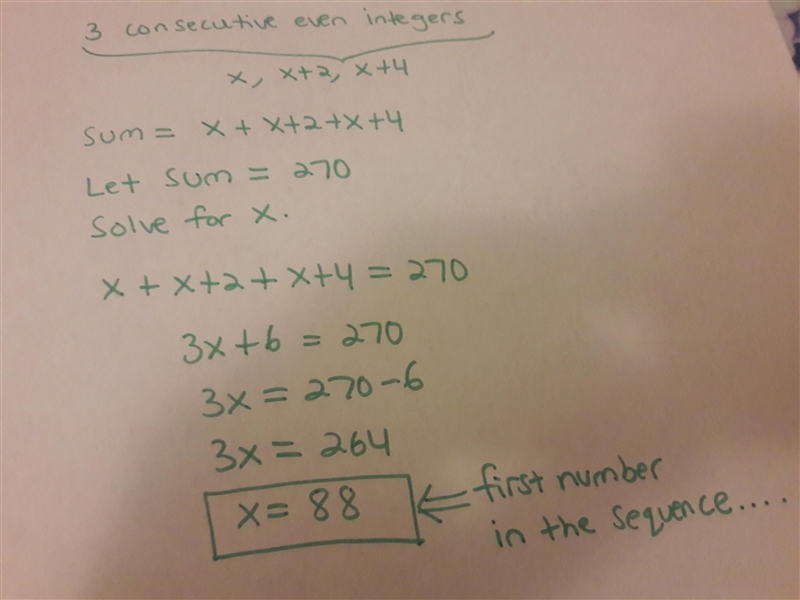 3 consecutive even integers
x, x+2, x+4
Sum = x + x+2+x+4
Let sum = 270
Solve for x.
x + x+2 + x+4 = 270
3x+6 = 270
3x = 270-6
3x = 264
x = 88
first number
in the sequence....